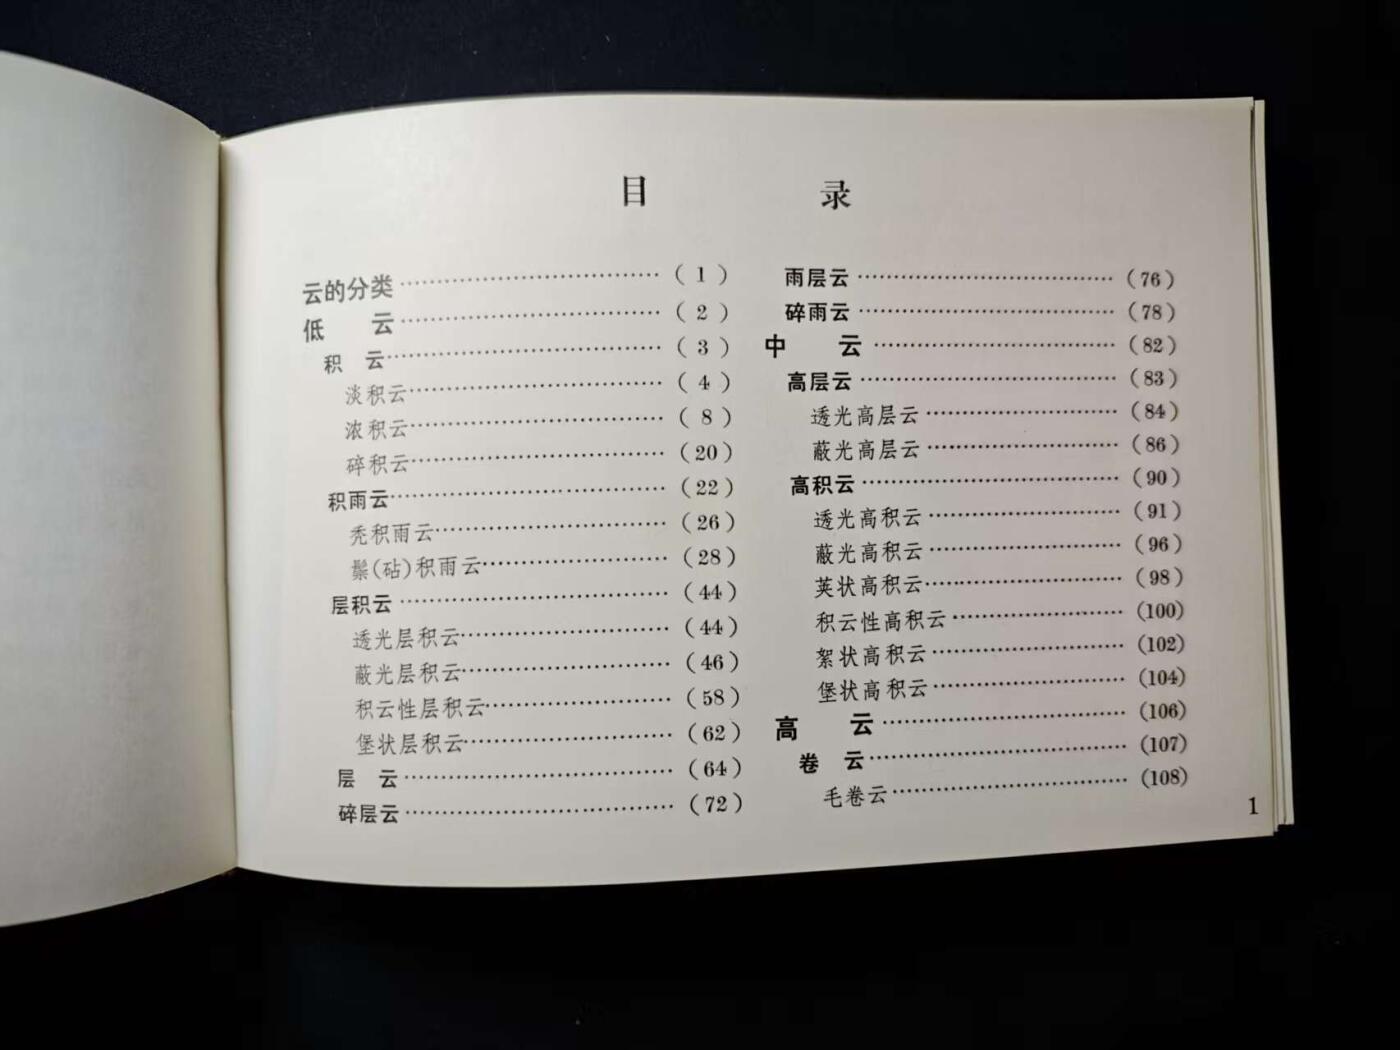 目 录
云的分类……………………………（1）
低 云……………………………（2）
积 云……………………………（3）
淡积云……………………………（4）
浓积云……………………………（8）
碎积云……………………………（20）
积雨云……………………………（22）
秃积雨云……………………………（26）
鬃(砧)积雨云……………………………（28）
层积云……………………………（44）
透光层积云……………………………（44）
蔽光层积云……………………………（46）
积云性层积云……………………………（58）
堡状层积云……………………………（62）
层 云……………………………（64）
碎层云……………………………（72）
雨层云……………………………（76）
碎雨云……………………………（78）
中 云……………………………（82）
高层云……………………………（83）
透光高层云……………………………（84）
蔽光高层云……………………………（86）
高积云……………………………（90）
透光高积云……………………………（91）
蔽光高积云……………………………（96）
荚状高积云……………………………（98）
积云性高积云……………………………（100）
絮状高积云……………………………（102）
堡状高积云……………………………（104）
高 云……………………………（106）
卷 云……………………………（107）
毛卷云……………………………（108）
1